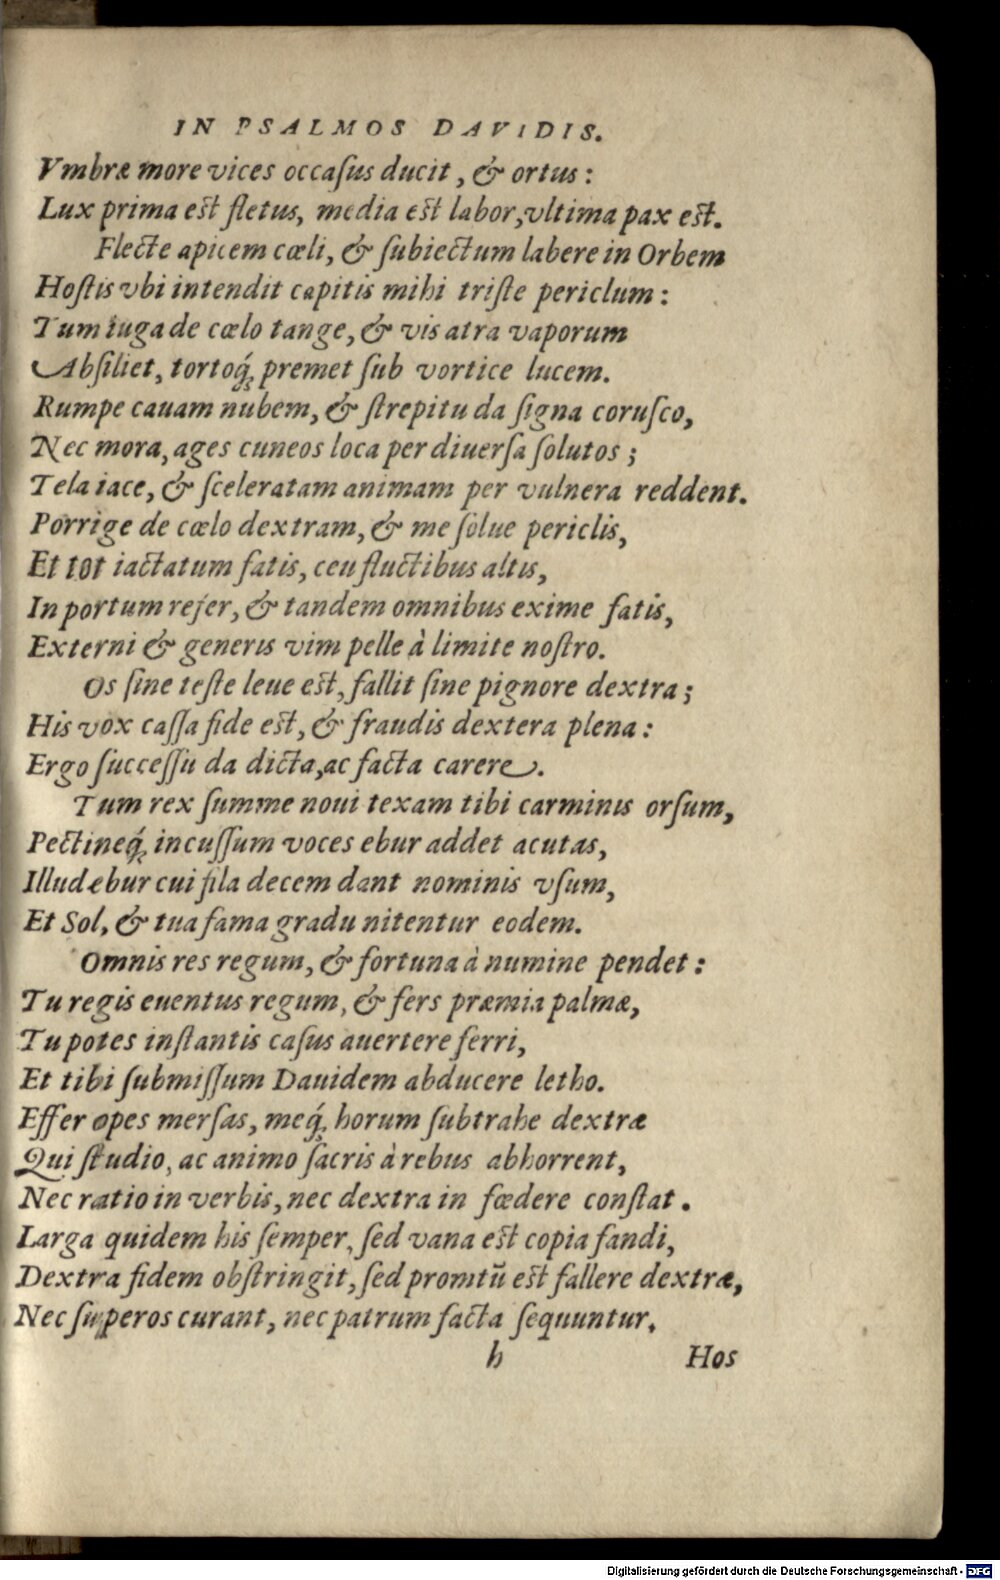 IN PSALMOS DAVIDIS.
Vmbræ more vices occaſus ducit, & ortus:
Lux prima eſt fletus, media eſt labor, vltima pax eſt.
Flecte apicem cœli, & ſubiectum labere in Orbem
Hoſtis vbi intendit capitis mihi triſte periclum:
Tum iuga de cœlo tange, & vis atra vaporum
Abſiliet, tortoq́; premet ſub vortice lucem.
Rumpe cauam nubem, & ſtrepitu da ſigna coruſco,
Nec mora, ages cuneos loca per diuerſa ſolutos;
Tela iace, & ſceleratam animam per vulnera reddent.
Porrige de cœlo dextram, & me ſolue periclis,
Et tot iactatum fatis, ceu fluctibus altis,
In portum refer, & tandem omnibus exime fatis,
Externi & generis vim pelle à limite noſtro.
Os ſine teſte leue eſt, fallit ſine pignore dextra;
His vox caſſa fide eſt, & fraudis dextera plena:
Ergo ſucceſſu da dicta, ac facta carere.
Tum rex ſumme noui texam tibi carminis orſum,
Pectineq́; incuſſum voces ebur addet acutas,
Illud ebur cui fila decem dant nominis vſum,
Et Sol, & tua fama gradu nitentur eodem.
Omnis res regum, & fortuna à numine pendet:
Tu regis euentus regum, & fers præmia palmæ,
Tu potes inſtantis caſus auertere ferri,
Et tibi ſubmiſſum Dauidem abducere letho.
Effer opes merſas, meq́; horum ſubtrahe dextræ
Qui ſtudio, ac animo ſacris à rebus abhorrent,
Nec ratio in verbis, nec dextra in fœdere conſtat.
Larga quidem his ſemper, ſed vana eſt copia fandi,
Dextra fidem obſtringit, ſed promtū eſt fallere dextræ,
Nec ſuperos curant, nec patrum facta ſequuntur.
h Hos
Digitalisierung gefördert durch die Deutsche Forschungsgemeinschaft - DFG